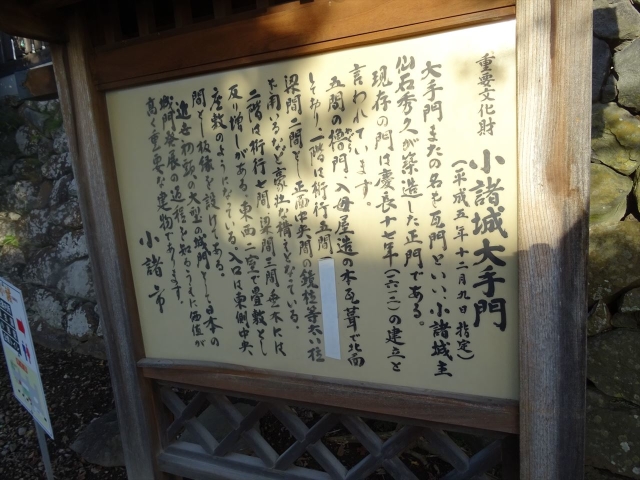 重要文化財
小諸城大手門
(平成五年十二月九日指定)
大手門またの名を瓦門といい、小諸城主
仙石秀久が築造した正門である。
現存の門は慶長十七年(一六一二)の建立と
言われています。
五間の櫓門、入母屋造の本瓦葺で北面
して在り一階は桁行五間
梁間二間とし正面中央間の鏡柱等太い柱
を用いるなど豪壮な構えとなっている。
二階は桁行七間、梁間三間、垂木には
反り増しがある。東西二室で畳敷とし
座敷のようになっている。入口は東側中央
間とし板縁を設けてある。
近世初頭の大型の城門として日本の
城門発展の過程を知るうえに価値が
高く重要な建物であります。
小諸市